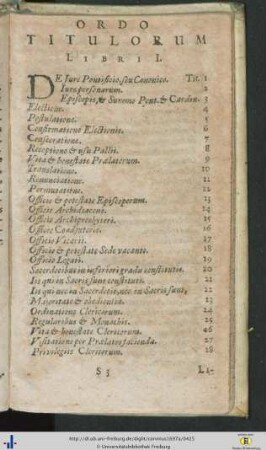 ORDO
TITULORUM
LIBRI I.
DE Iure Pontificio, seu Canonico. Tit. 1
Iure personarum. 2
Episcopis, & Summo Pont. & Cardin. 3
Electione. 4
Postulatione. 5
Confirmatione Electionis. 6
Consecratione. 7
Receptione & usu Pallii. 8
Vita & honestate Prælatorum. 9
Translatione. 10
Renunciatione. 11
Permutatione. 12
Officio & potestate Episcoporum. 13
Officio Archidiaconi. 14
Officio Archipresbyteri. 15
Officio Coadjutoris. 16
Officio Vicarii. 17
Officio & potestate Sede vacante. 18
Officio Legati. 19
Sacerdotibus in inferiori gradu constitutis. 20
Iis qui in Sacris sunt constituti. 21
Iis qui nec in Sacerdotio, nec in Sacris sunt. 22
Maioritate & obedientia. 23
Ordinatione Clericorum. 24
Regularibus & Monachis. 25
Vita & honestate Clericorum. 26
Visitatione per Prælatos facienda. 27
Privilegiis Clericorum. 28
S 3 LI-
© Universitätsbibliothek Freiburg